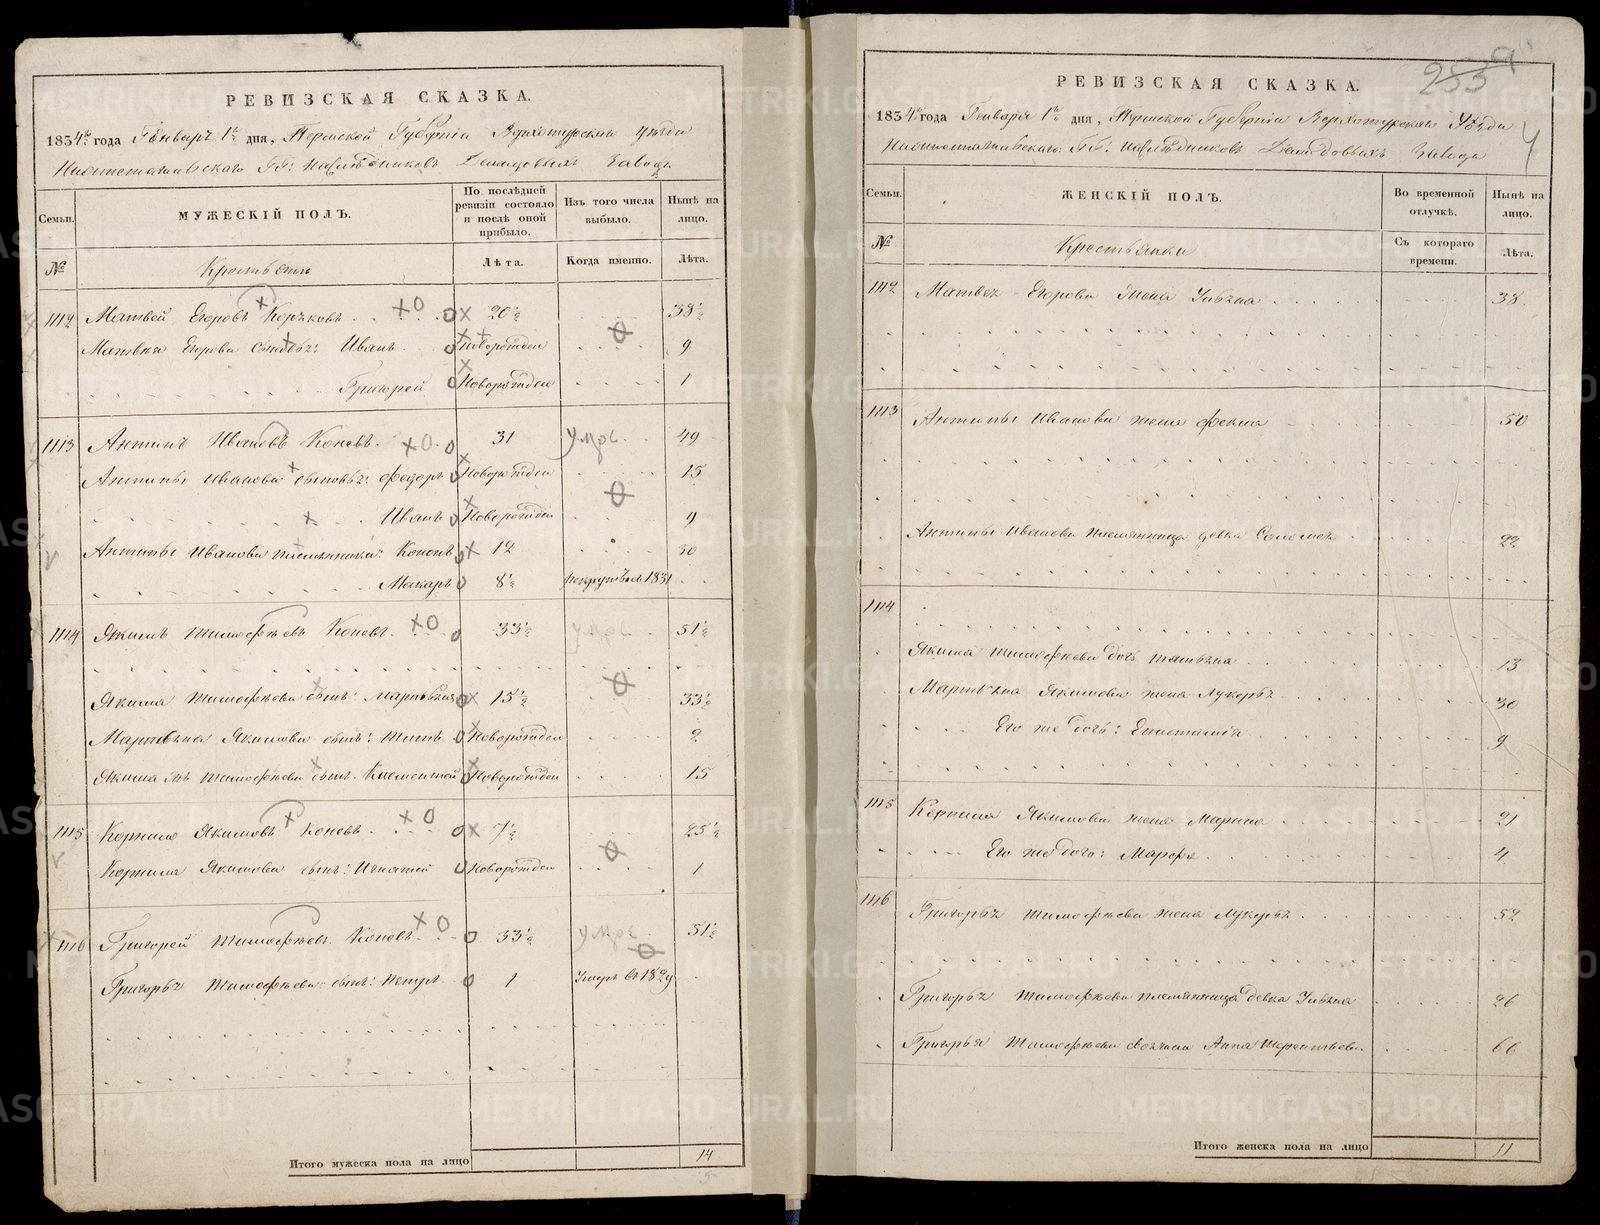 РЕВИЗСКАЯ СКАЗКА.
1834го года Генваря 1го дня, Пермской Губернiи Верхотурскаго уезда
Нижнетагильскаго ГГ: наследниковъ Демидовыхъ завода
Семьи.
МУЖЕСКIЙ ПОЛЪ.
По последней ревизiи состояло и после оной прибыло.
Изъ того числа выбыло.
Ныне на лицо.
№
Крестьяне
Лѣта.
Когда именно.
Лѣта.
1112 Матвей Егоровъ 20½ 38½
Матвея Егорова сыновья: Иванъ новорожден 9
Григорей Новорожден 1
1113 Антипъ Ивановъ Коневъ. 31 умре 49
Антипы Иванова сыновья: Федоръ Новорожден 15
Иванъ Новорожден 9
Антипы Иванова племянники: Кононъ 12 30
Макаръ 8½ рекрутъ въ 1831
1114 Якимъ Тимофеевъ Коневъ. 33½ умре 51½
Якима Тимофеева сынъ: 15½ 33½
Якимова сынъ: Титъ Новорожден 2
Якима же Тимофеева сынъ: Климентей Новорожден 15
1115 Корнило Якимовъ Коневъ 7½ 25½
Корнила Якимова сынъ: Игнатей Новорожден 1
1116 Григорей Тимофеевъ Коневъ 33½ умре 51½
Григорья Тимофеева сынъ: Петръ 1 Умеръ въ 1829
Итого мужеска пола на лицо 14
5
РЕВИЗСКАЯ СКАЗКА.
253 9
1834го года Генваря 1го дня, Пермской Губернiи Верхотурскаго Уезда
Нижнетагильскаго ГГ: наследниковъ Демидовыхъ завода
4
Семьи.
ЖЕНСКIЙ ПОЛЪ.
Во временной отлучкѣ.
Нынѣ на лицо.
№
Крестьянки
Съ котораго времени.
Лѣта.
1112 Матвея Егорова жена Ульяна 38
1113 Антипы Иванова жена Фекла 50
Антипы Иванова племянница девка Соломея 22
1114
Якима Тимофеева дочь Татьяна 13
Якимова жена Лукерья 30
Его же дочь: Епистимия 9
1115 Корнила Якимова жена Марина 21
Его же дочь: Марфа 4
1116 Григорья Тимофеева жена Лукерья 52
Григорья Тимофеева племянница девка Ульяна 26
Григорья Тимофеева Анна Терентьева 66
Итого женска пола на лицо 11
METRIKI.GASO-URAL.RU